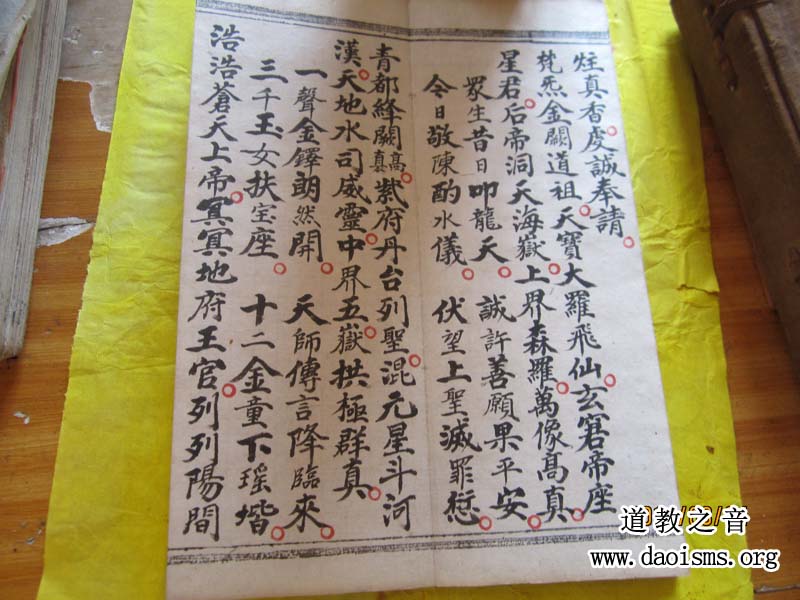 炷真香虔誠奉請
梵炁金闕道祖天寶大羅飛仙玄窘帝座
星君后帝洞天海嶽上界森羅萬像高真
眾生昔日叩龍天 誠許善願果平安
今日敬陳酌水儀 伏望上聖滅罪愆
青都絳闕高真紫府丹台列聖混元星斗河
漢天地水司威靈中界五嶽拱極群真
一聲金鐸朗然開 天師傳言降臨來
三千玉女扶宝座 十二金童下瑶堦
浩浩蒼天上帝冥冥地府王官列列陽間
道教之音
www.daoisms.org